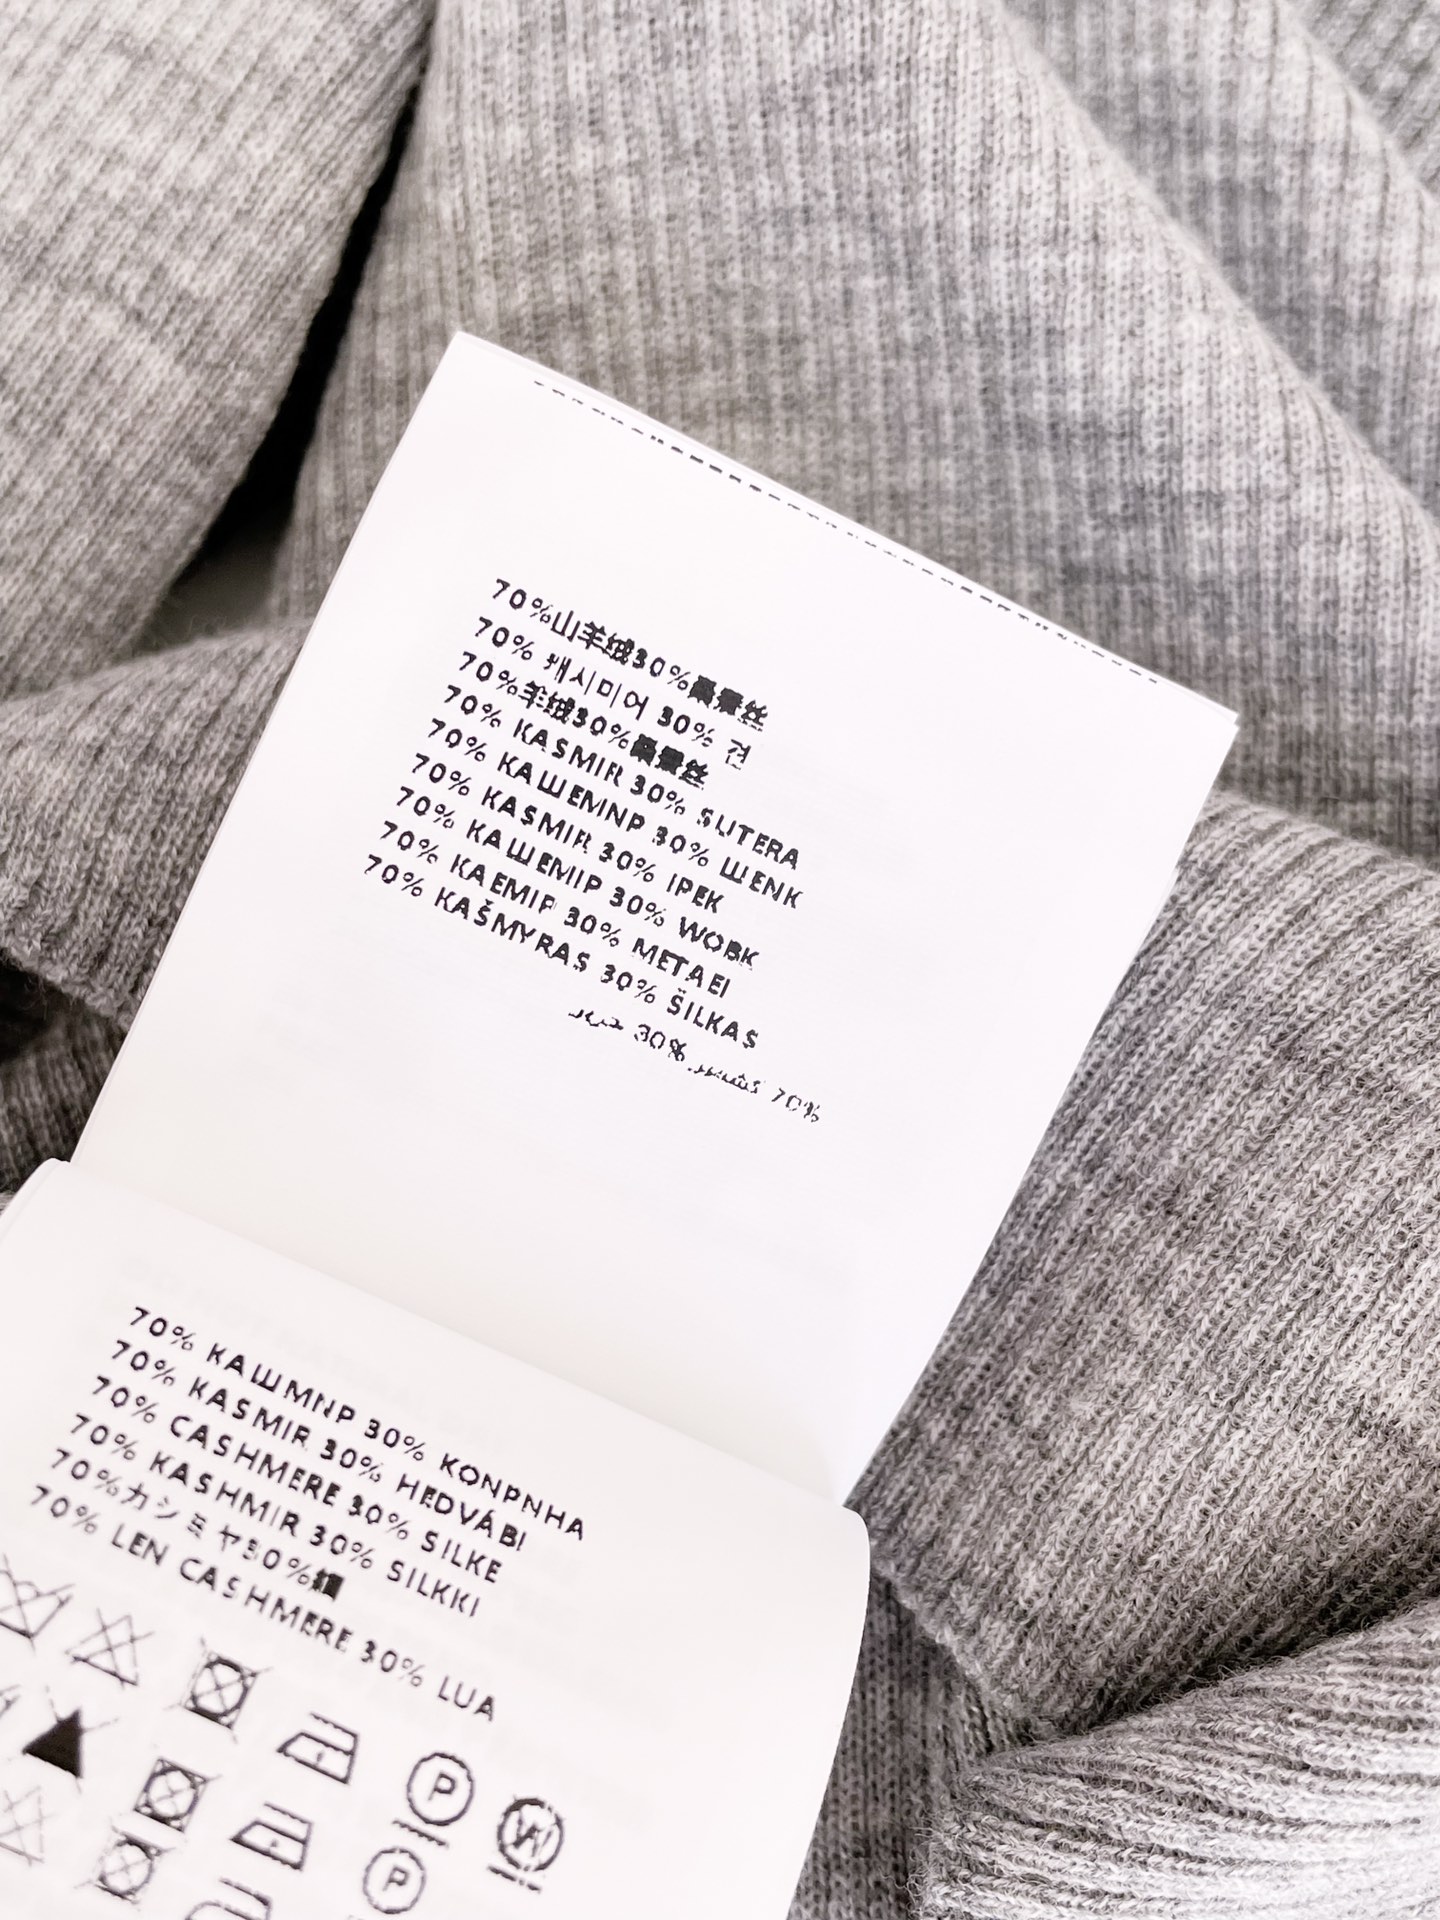 70%山羊绒30%桑蚕丝
70% 캐시미어 30% 견
70%羊绒30%桑蚕丝
70% KASMIR 30% SUTERA
70% КАШЕМNР 30% ШЕNК
70% KASMIR 30% IPEK
70% КАШЕМІР 30% WOBK
70% KAEMIP 30% METAEI
70% KAŠMYRAS 30% ŠILKAS
30% 70%
70% КАШМNР 30% KONPNHA
70% KASMIR 30% HEDVÁBI
70% CASHMERE 30% SILKE
70% KASHMIR 30% SILKKI
70%カシミヤ30%絹
70% LEN CASHMERE 30% LUA
P
W
P